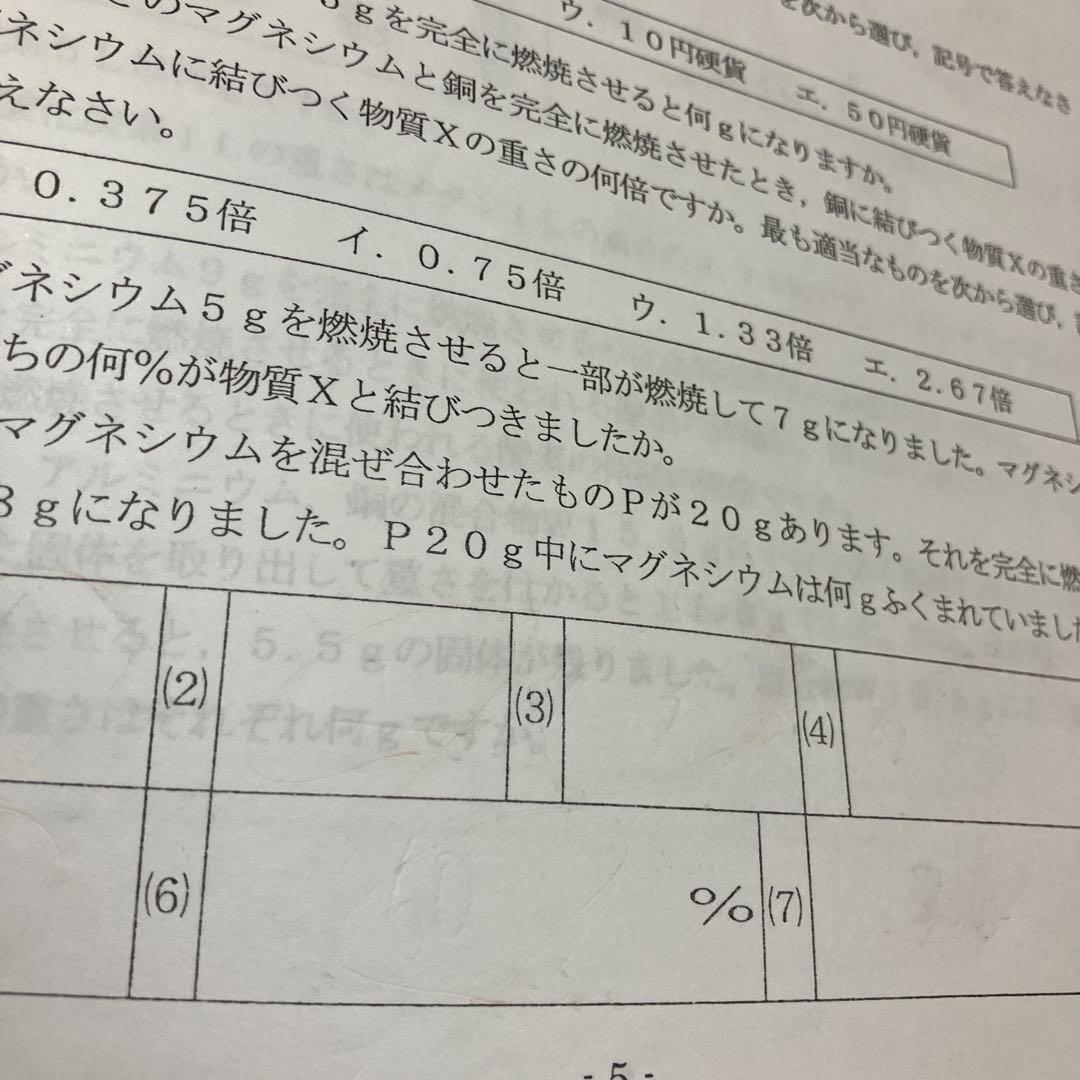 を次から選び，記号で答えなさ
ウ．１０円硬貨　エ．５０円硬貨
ｇを完全に燃焼させると何ｇになりますか。
のマグネシウムと銅を完全に燃焼させたとき，銅に結びつく物質Ｘの重さ
ネシウムに結びつく物質Ｘの重さの何倍ですか。最も適当なものを次から選び，
えなさい。
０．３７５倍　イ．０．７５倍　ウ．１．３３倍　エ．２．６７倍
グネシウム５ｇを燃焼させると一部が燃焼して７ｇになりました。マグネシ
ちの何％が物質Ｘと結びつきましたか。
マグネシウムを混ぜ合わせたものＰが２０ｇあります。それを完全に燃
ｇになりました。Ｐ２０ｇ中にマグネシウムは何ｇふくまれていました
(2) (3) (4)
(6) ％ (7)
- 5 -